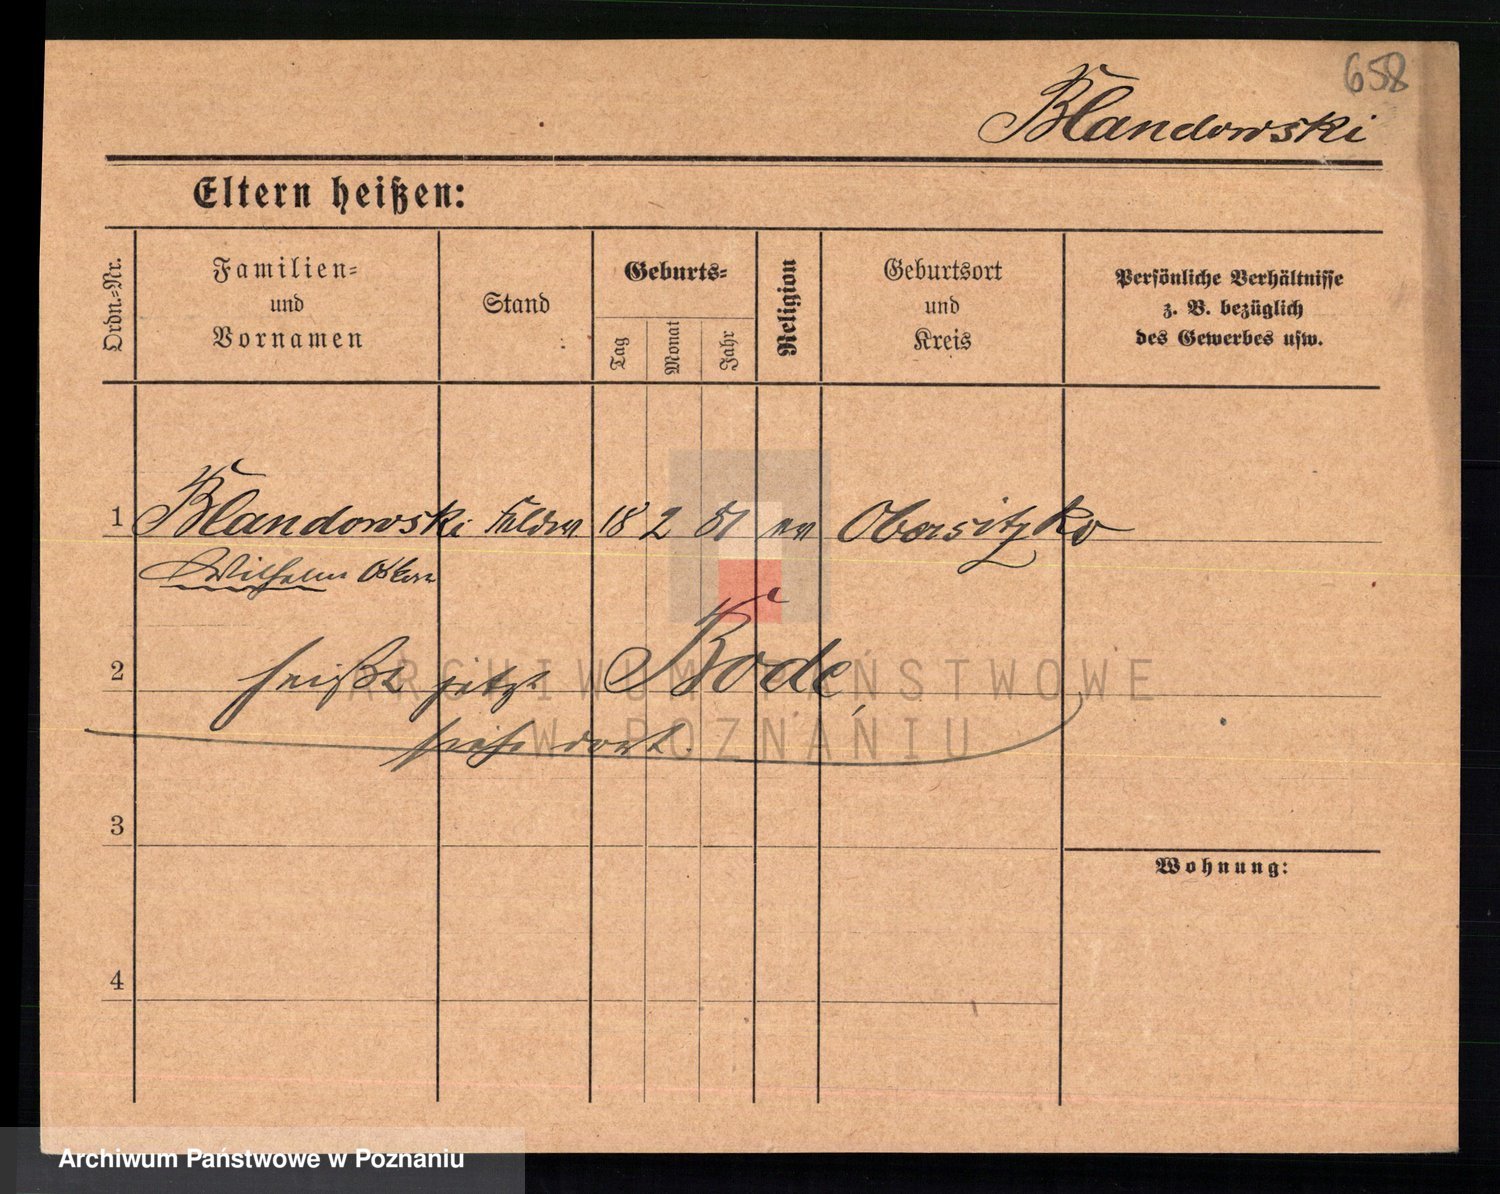 658
Blandowski
Eltern heißen:
Ordn.=Nr.
Familien=
und
Vornamen
Stand
Geburts=
Tag
Monat
Jahr
Religion
Geburtsort
und
Kreis
Persönliche Verhältnisse
z. B. bezüglich
des Gewerbes usw.
1 Blandowski Feldw. 18 2 81 ev Obersitzko
Wilhelm Oskar
2 heißt jetzt Bode,
siehe dort.
3
4
Wohnung:
ARCHIWUM PAŃSTWOWE
W POZNANIU
Archiwum Państwowe w Poznaniu